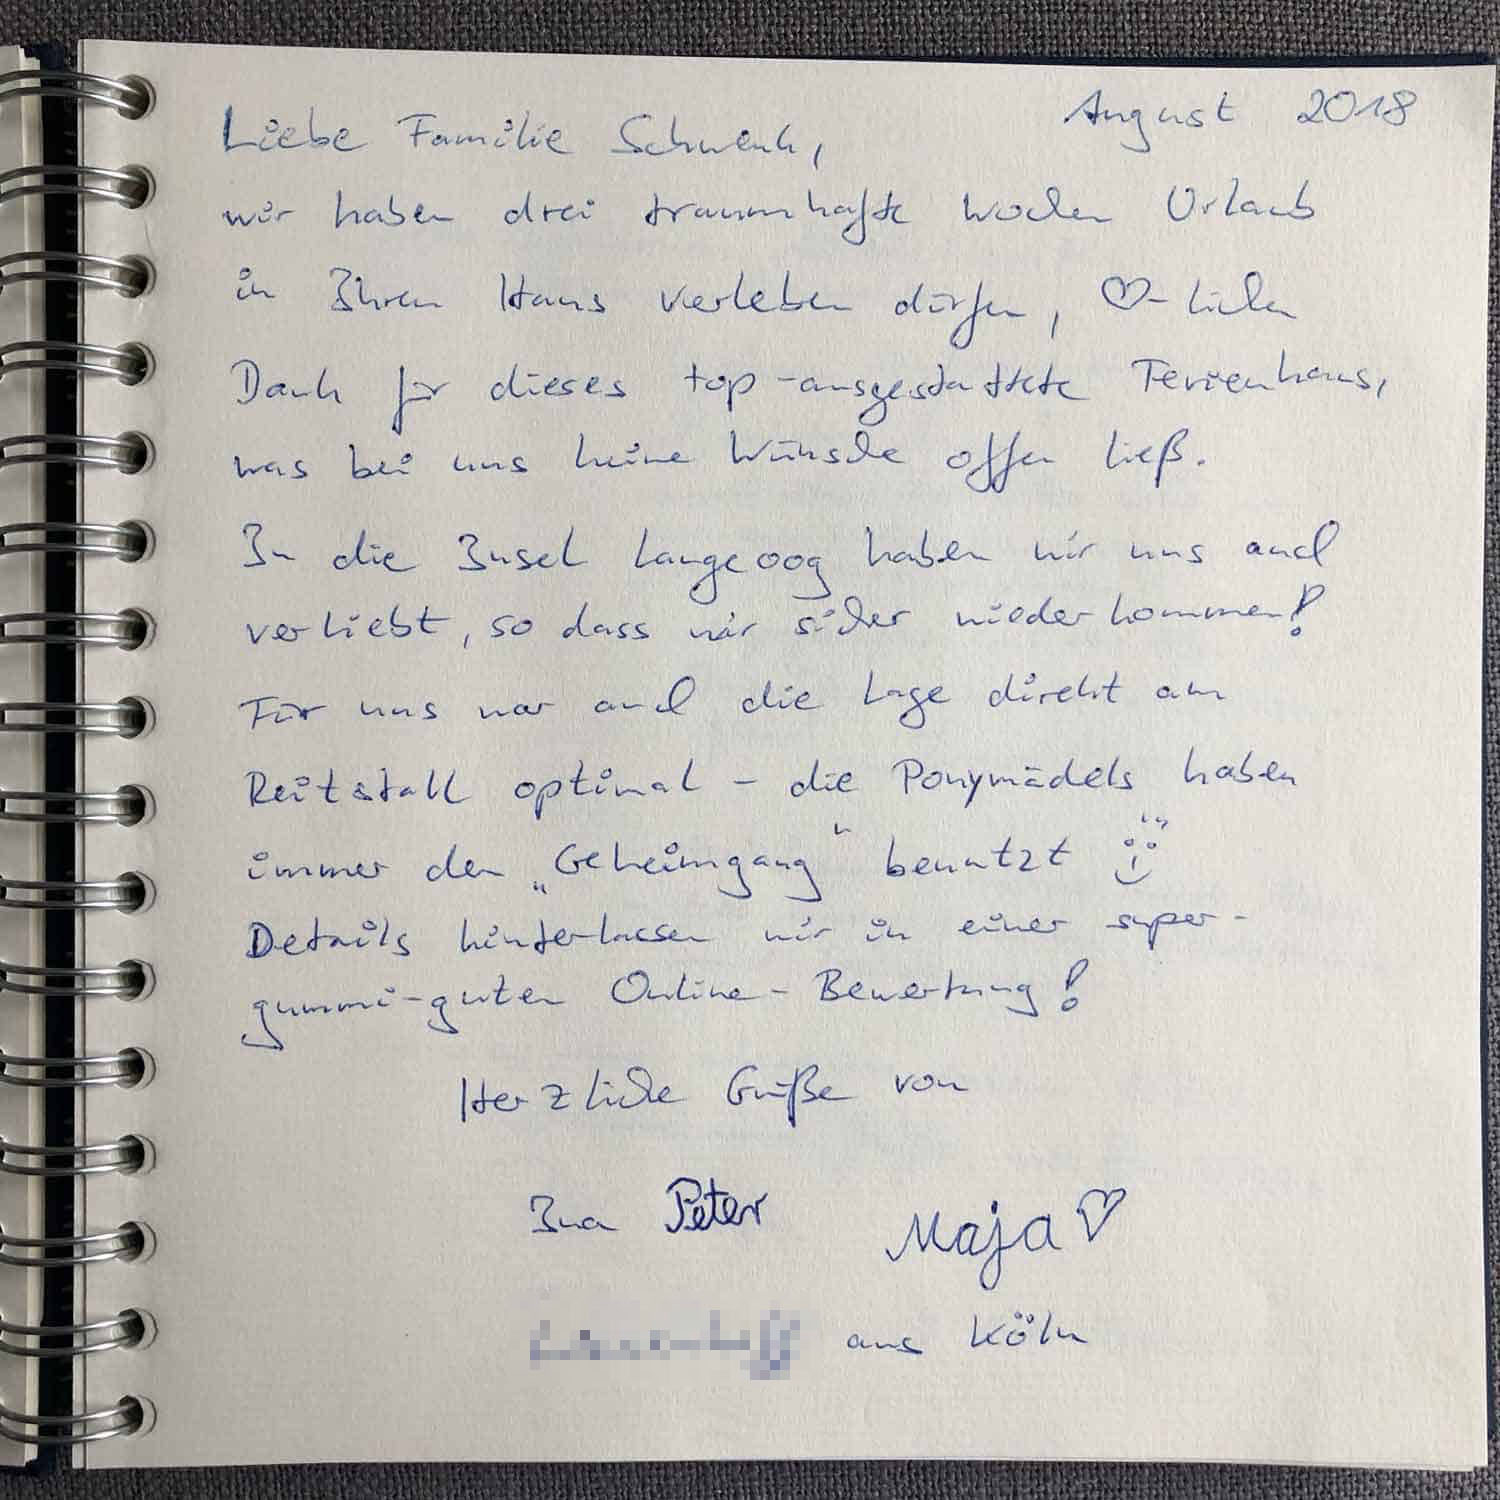 August 2018
Liebe Familie Schwenk,
wir haben drei traumhafte Wochen Urlaub
in Ihren Haus verleben dürfen, ♡-lichen
Dank für dieses top-ausgestattete Ferienhaus,
was bei uns keine Wünsche offen ließ.
In die Insel Langeoog haben wir uns auch
verliebt, so dass wir sicher wiederkommen!
Für uns war auch die Lage direkt am
Reitstall optimal - die Ponymädels haben
immer den „Geheimgang“ benutzt
Details hinterlassen wir in einer super-
gummi-guten Online-Bewertung!
Herzliche Grüße von
Ina Peter Maja ♡
aus Köln